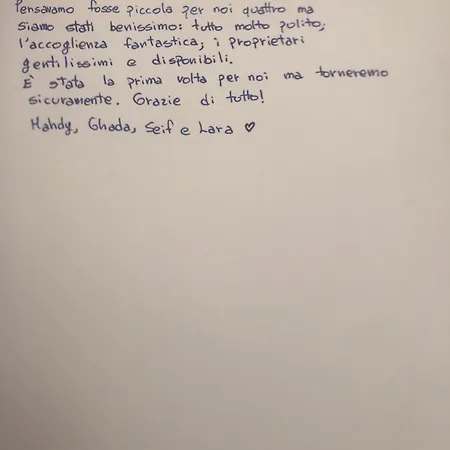 Pensavamo fosse piccola per noi quattro ma
siamo stati benissimo: tutto molto pulito;
l'accoglienza fantastica, i proprietari
gentilissimi e disponibili.
È stata la prima volta per noi ma torneremo
sicuramente. Grazie di tutto!
Mahdy, Ghada, Seif e Lara ♡